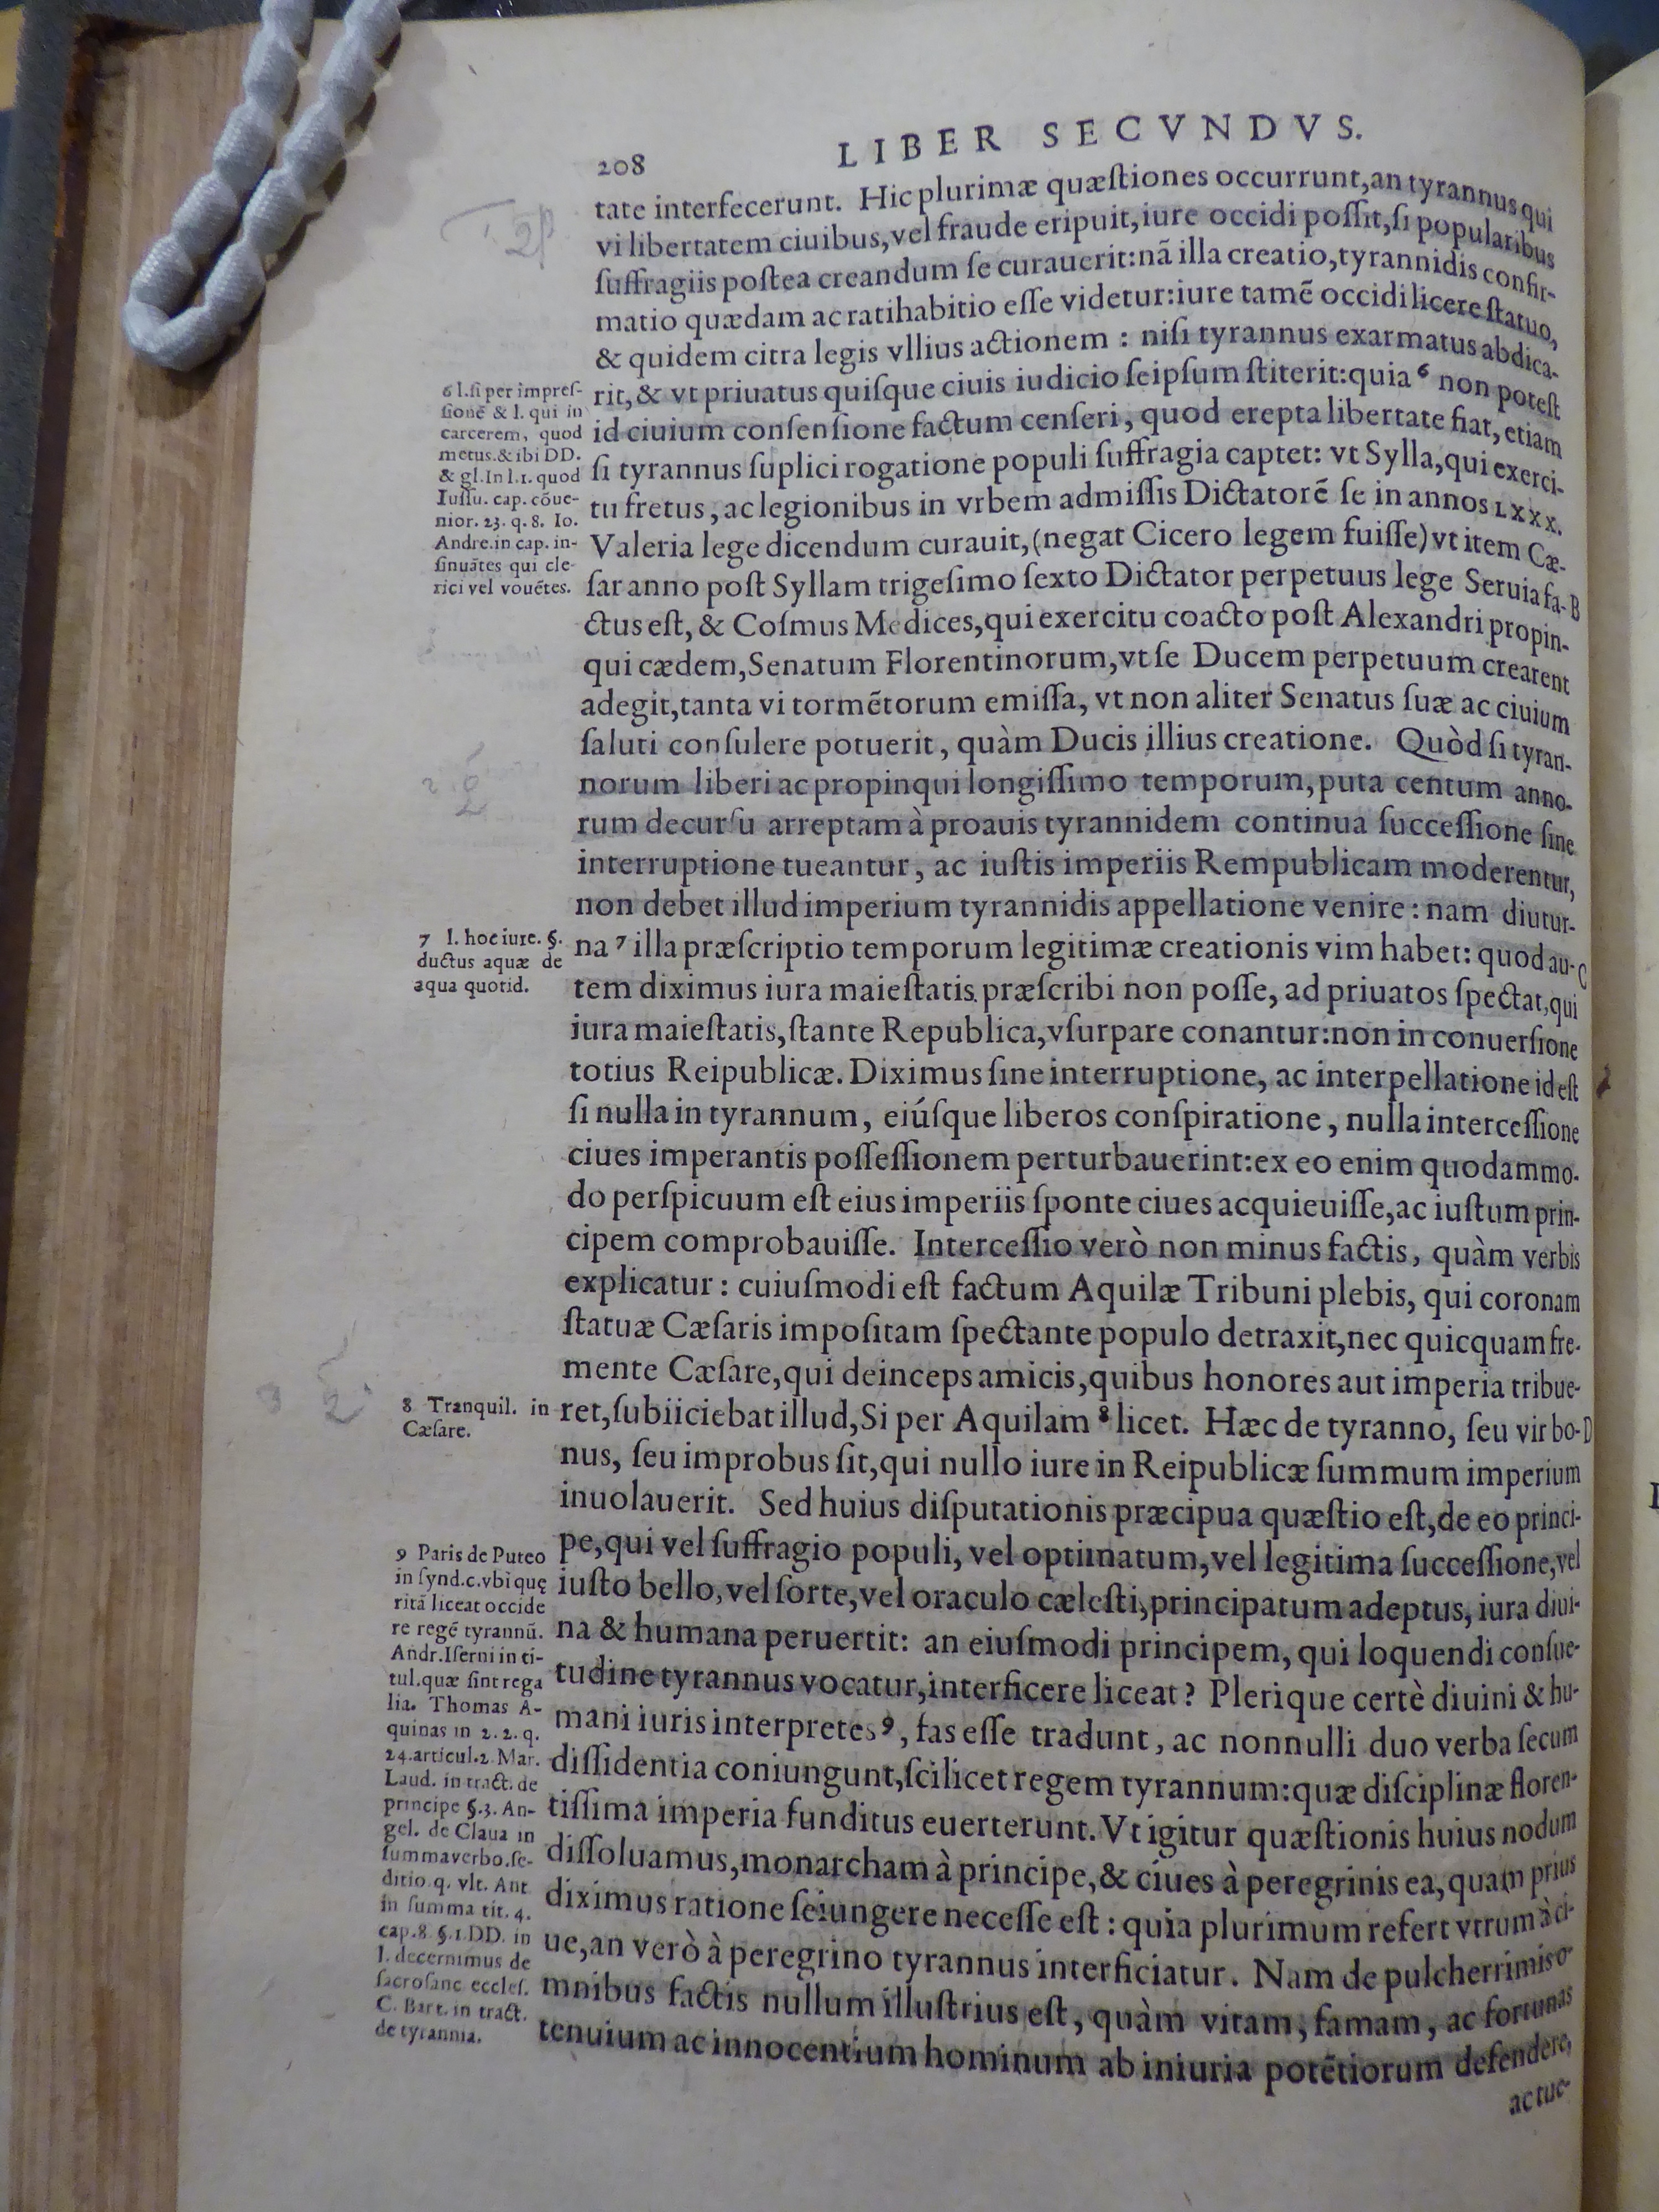 208
LIBER SECVNDVS.
tate interfecerunt. Hic plurimæ quæſtiones occurrunt,an tyrannus qui
vi libertatem ciuibus,vel fraude eripuit,iure occidi poſſit,ſi popularibus
ſuffragiis poſtea creandum ſe curauerit:nã illa creatio,tyrannidis confir-
matio quædam ac ratihabitio eſſe videtur:iure tamẽ occidi licere ſtatuo,
& quidem citra legis vllius actionem : niſi tyrannus exarmatus abdica-
rit,& vt priuatus quiſque ciuis iudicio ſeipſum ſtiterit:quia 6 non poteſt
id ciuium conſenſione factum cenſeri, quod erepta libertate fiat, etiam
ſi tyrannus ſuplici rogatione populi ſuffragia captet: vt Sylla,qui exerci-
tu fretus, ac legionibus in vrbem admiſſis Dictatorẽ ſe in annos LXXX.
Valeria lege dicendum curauit,(negat Cicero legem fuiſſe) vt item Cæ-
ſar anno poſt Syllam trigeſimo ſexto Dictator perpetuus lege Seruia fa- B
ctus eſt, & Coſmus Medices,qui exercitu coacto poſt Alexandri propin-
qui cædem,Senatum Florentinorum,vt ſe Ducem perpetuum crearent
adegit,tanta vi tormẽtorum emiſſa, vt non aliter Senatus ſuæ ac ciuium
ſaluti conſulere potuerit, quàm Ducis illius creatione. Quòd ſi tyran-
norum liberi ac propinqui longiſſimo temporum,puta centum anno-
rum decurſu arreptam à proauis tyrannidem continua ſucceſſione ſine
interruptione tueantur, ac iuſtis imperiis Rempublicam moderentur,
non debet illud imperium tyrannidis appellatione venire : nam diutur-
na 7 illa præſcriptio temporum legitimæ creationis vim habet: quod au- C
tem diximus iura maieſtatis præſcribi non poſſe, ad priuatos ſpectat,qui
iura maieſtatis,ſtante Republica,vſurpare conantur:non in conuerſione
totius Reipublicæ. Diximus ſine interruptione, ac interpellatione id eſt
ſi nulla in tyrannum, eiúſque liberos conſpiratione, nulla interceſſione
ciues imperantis poſſeſſionem perturbauerint:ex eo enim quodammo-
do perſpicuum eſt eius imperiis ſponte ciues acquieuiſſe,ac iuſtum prin-
cipem comprobauiſſe. Interceſſio verò non minus factis, quàm verbis
explicatur : cuiuſmodi eſt factum Aquilæ Tribuni plebis, qui coronam
ſtatuæ Cæſaris impoſitam ſpectante populo detraxit,nec quicquam fre-
mente Cæſare,qui deinceps amicis,quibus honores aut imperia tribue-
ret,ſubiiciebat illud,Si per Aquilam 8 licet. Hæc de tyranno, ſeu vir bo- D
nus, ſeu improbus ſit,qui nullo iure in Reipublicæ ſummum imperium
inuolauerit. Sed huius diſputationis præcipua quæſtio eſt,de eo princi-
pe,qui vel ſuffragio populi, vel optimatum,vel legitima ſucceſſione,vel
iuſto bello,vel ſorte,vel oraculo cæleſti,principatum adeptus, iura diui-
na & humana peruertit: an eiuſmodi principem, qui loquendi conſue-
tudine tyrannus vocatur,interficere liceat? Plerique certè diuini & hu-
mani iuris interpretes 9, fas eſſe tradunt, ac nonnulli duo verba ſecum
diſſidentia coniungunt,ſcilicet regem tyrannum:quæ diſciplinæ floren-
tiſſima imperia funditus euerterunt. Vt igitur quæſtionis huius nodum
diſſoluamus,monarcham à principe,& ciues à peregrinis ea,quam prius
diximus ratione ſeiungere neceſſe eſt : quia plurimum refert vtrum à ci-
ue,an verò à peregrino tyrannus interficiatur. Nam de pulcherrimis o-
mnibus factis nullum illuſtrius eſt, quàm vitam, famam, ac fortunas
tenuium ac innocentium hominum ab iniuria potẽtiorum defendere,
ac tue-
6 l.ſi per impreſ-
ſionẽ & l. qui in
carcerem, quod
metus.& ibi DD.
& gl.In l.1. quod
Iuſſu. cap. cõue-
nior. 23. q. 8. Io.
Andre.in cap. in-
ſinuãtes qui cle-
rici vel vouẽtes.
7 l. hoc iure. §.
ductus aquæ de
aqua quotid.
8 Tranquil. in
Cæſare.
9 Paris de Puteo
in ſynd.c.vbi quę
ritã liceat occide
re regẽ tyrannũ.
Andr.Iſerni in ti-
tul.quæ ſint rega
lia. Thomas A-
quinas in 2.2. q.
24.articul.2. Mar.
Laud. in tract. de
principe §.3. An-
gel. de Claua in
ſumma verbo.ſe-
ditio.q. vlt. Ant
in ſumma tit. 4.
cap.8. §.1.DD. in
l. decernimus de
ſacroſanc. eccleſ.
C. Bart. in tract.
de tyrannia.